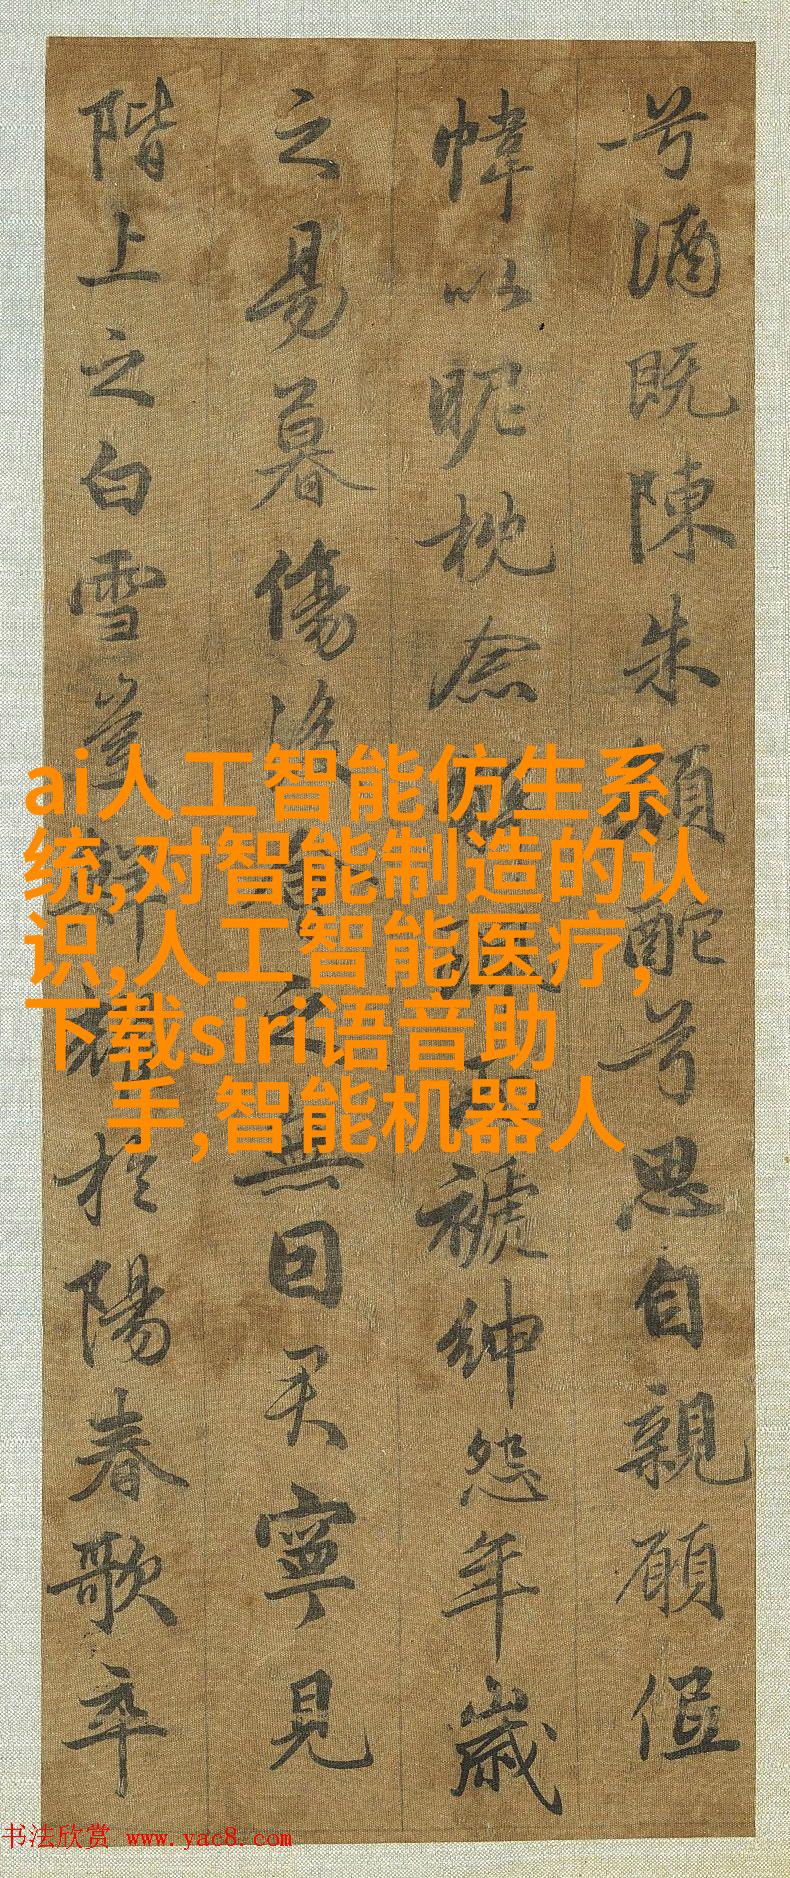 兮酒既陳朱顏酡兮思自親願低
幃以昵枕念褫紳怨年歲
之易暮傷後之無因君寧見
階上之白雪豈鮮耀於陽春歌卒
ai人工智能仿生系
统,对智能制造的认
识,人工智能医疗,
下载siri语音助
手,智能机器人
书法欣赏 www.yac8.com